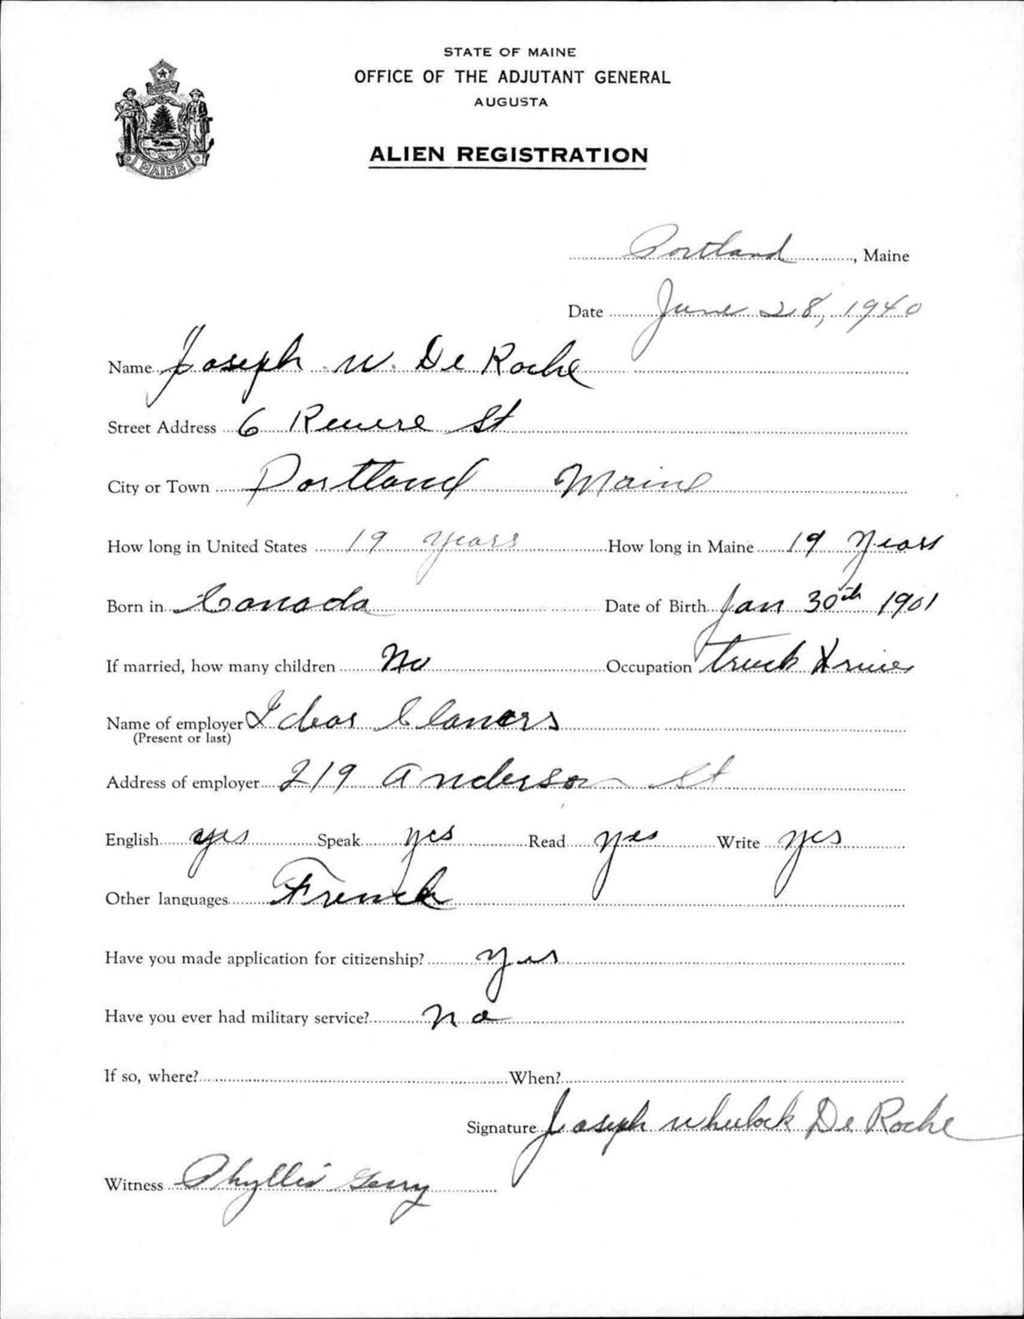 STATE OF MAINE
OFFICE OF THE ADJUTANT GENERAL
AUGUSTA
MAINE
ALIEN REGISTRATION
Portland, Maine
Date June 28, 1940
Name Joseph W. De Roche
Street Address 6 Revere St
City or Town Portland Maine
How long in United States 19 years How long in Maine 19 Years
Born in Canada Date of Birth Jan 30th 1901
If married, how many children No Occupation truck Driver
Name of employer Ideal
(Present or last)
Address of employer 219 Anderson St
English yes Speak yes Read yes Write yes
Other languages French
Have you made application for citizenship? Yes
Have you ever had military service? no
If so, where? When?
Signature Joseph Wheelock De Roche
Witness Phyllis Gerry